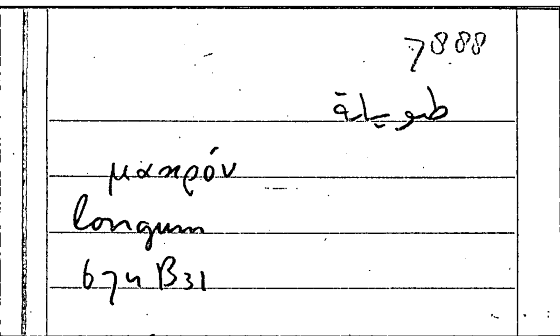 7888
طويلة
μακρόν
longum
674 B31